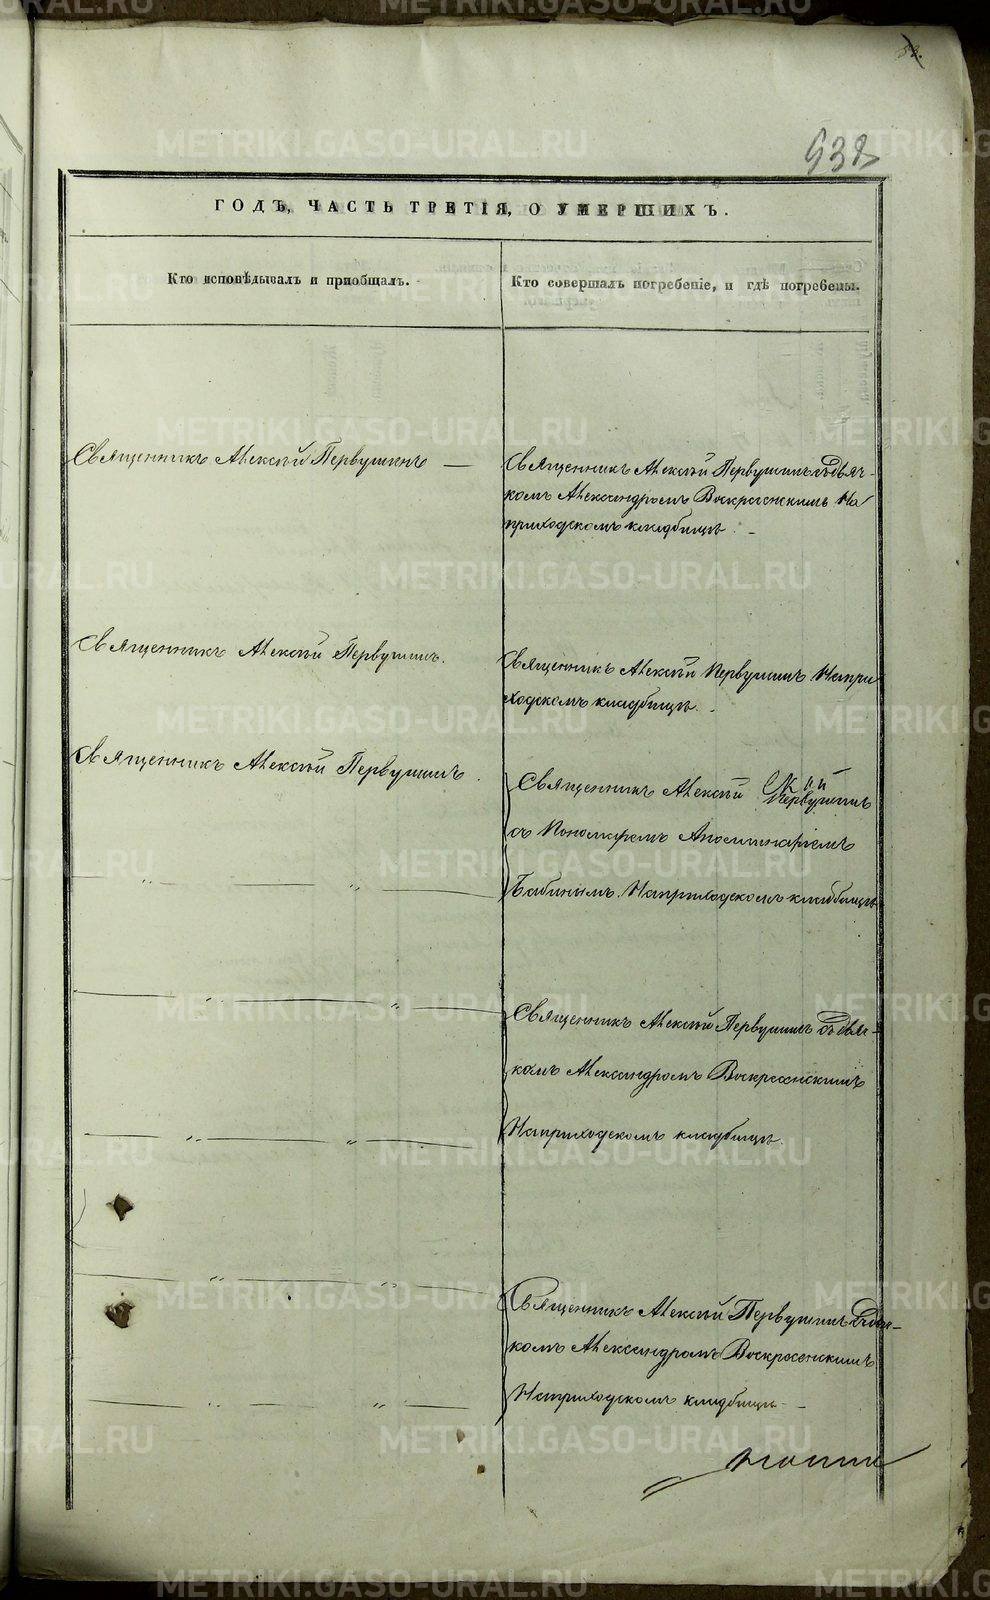 932
ГОДЪ, ЧАСТЬ ТРЕТІЯ, О УМЕРШИХЪ.
Кто исповѣдывалъ и пріобщалъ.
Кто совершалъ погребеніе, и гдѣ погребены.
Священникъ Алексѣй Первушинъ —
Священникъ Алексѣй Первушинъ съ дьяч-
комъ Александромъ Воскресенскимъ На
приходскомъ кладбищѣ. -
Священникъ Алексѣй Первушинъ.
Священникъ Алексѣй Первушинъ На при
ходскомъ кладбищѣ.
Священникъ Алексѣй Первушинъ.
Священникъ Алексѣй Первушинъ
съ Пономаремъ Аполлинаріемъ
Бабинымъ. На приходскомъ кладбищѣ
— „ — „ —
— „ — „ —
Священникъ Алексѣй Первушинъ съ дья-
комъ Александромъ Воскресенскимъ
На приходскомъ кладбищѣ.
— „ — „ —
— „ — „ —
Священникъ Алексѣй Первушинъ съ дья-
комъ Александромъ Воскресенскимъ
На приходскомъ кладбищѣ -
— „ — „ —
METRIKI.GASO-URAL.RU